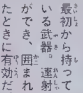 最初から持って
いる武器。連射
ができ、囲まれ
たときに有効だ